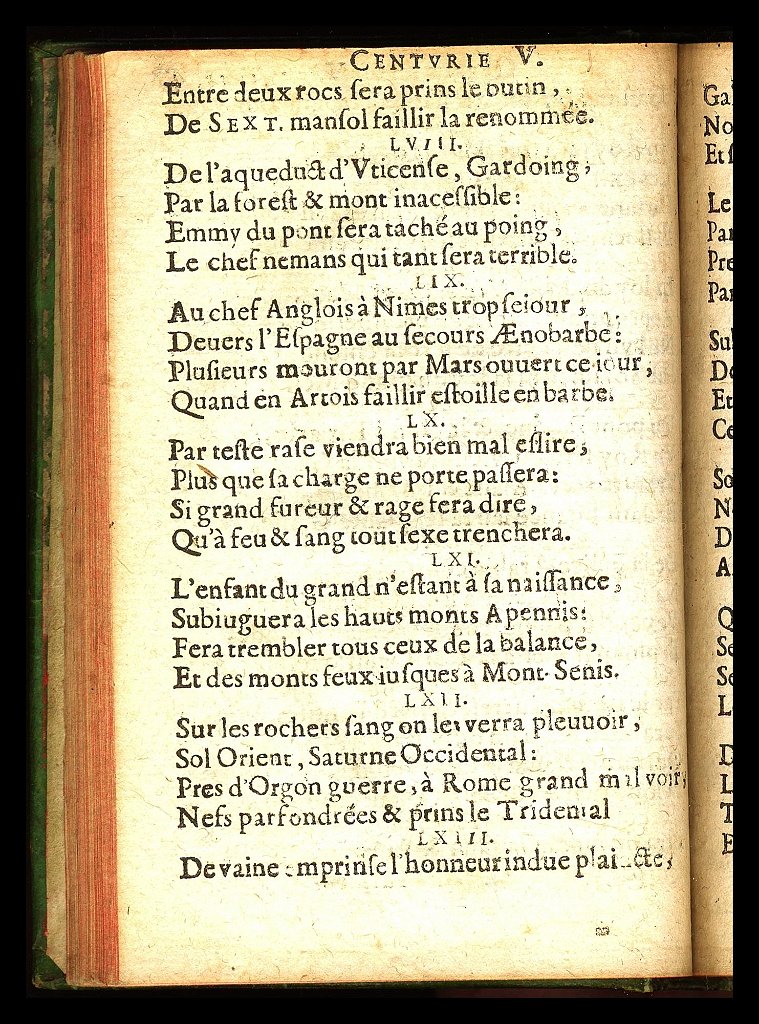 CENTVRIE V.
Entre deux rocs ſera prins le butin,
De SEXT. manſol faillir la renommée.
LVIII.
De l'aqueduct d'Vticenſe, Gardoing,
Par la foreſt & mont inaceſſible:
Emmy du pont ſera taché au poing,
Le chef nemans qui tant ſera terrible.
LIX.
Au chef Anglois à Nimes trop ſeiour,
Deuers l'Eſpagne au ſecours Ænobarbe:
Pluſieurs mouront par Mars ouuert ce iour,
Quand en Artois faillir eſtoille en barbe.
LX.
Par teſte raſe viendra bien mal eſlire,
Plus que ſa charge ne porte paſſera:
Si grand fureur & rage fera dire,
Qu'à feu & ſang tout ſexe trenchera.
LXI.
L'enfant du grand n'eſtant à ſa naiſſance,
Subiuguera les hauts monts Apennis:
Fera trembler tous ceux de la balance,
Et des monts feux iuſques à Mont-Senis.
LXII.
Sur les rochers ſang on les verra pleuuoir,
Sol Orient, Saturne Occidental:
Pres d'Orgon guerre, à Rome grand mal voir,
Nefs parfondrées & prins le Tridental
LXIII.
De vaine emprinſe l'honneur indue plaincte,
Ga
No
Et ſ
Le
Par
Pre
Par
Sul
De
Et
Ce
So
N
D
A
Q
Se
Se
L
D
L
T
E